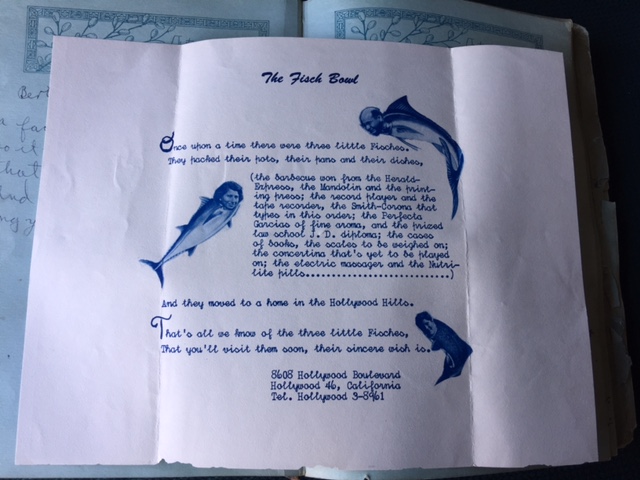 The Fisch Bowl
Once upon a time there were three little Fisches.
They packed their pots, their pans and their dishes,
(the barbecue won from the Herald-
Express, the Mandolin and the print-
ing press; the record player and the
tape recorder, the Smith-Corona that
types in this order; the Perfecto
Garcias of fine aroma, and the prized
law school J. D. diploma; the cases
of books, the scales to be weighed on;
the concertina that's yet to be played
on; the electric massager and the Nutri-
lite pills..............................)
And they moved to a home in the Hollywood Hills.
That's all we know of the three little Fisches,
That you'll visit them soon, their sincere wish is.
8608 Hollywood Boulevard
Hollywood 46, California
Tel. Hollywood 3-8961